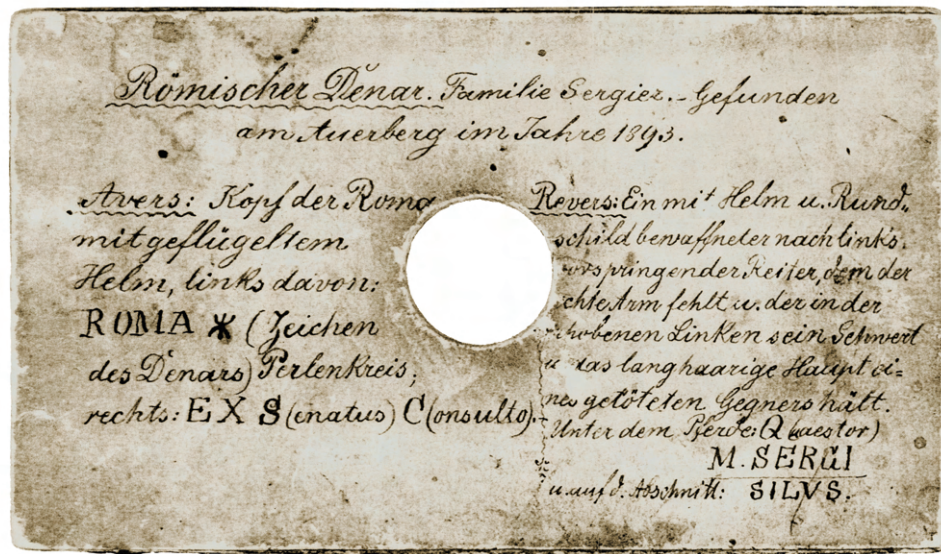 Römischer Denar. Familie Sergier. - Gefunden
am Auerberg im Jahre 1893.
Avers: Kopf der Roma
mit geflügeltem
Helm, links davon:
ROMA 🞶 (Zeichen
des Denars) Perlenkreis;
rechts: EX S(enatus) C(onsulto).
Revers: Ein mit Helm u. Rund-
schild bewaffneter nach links
vorspringender Reiter, dem der
chte Arm fehlt u. der in der
hobenen Linken sein Schwert
u. das langhaarige Haupt ei=
nes getöteten Gegners hält.
Unter dem Pferde: Q(uaestor)
M. SERGI
u. auf d. Abschnitt: SILVS.